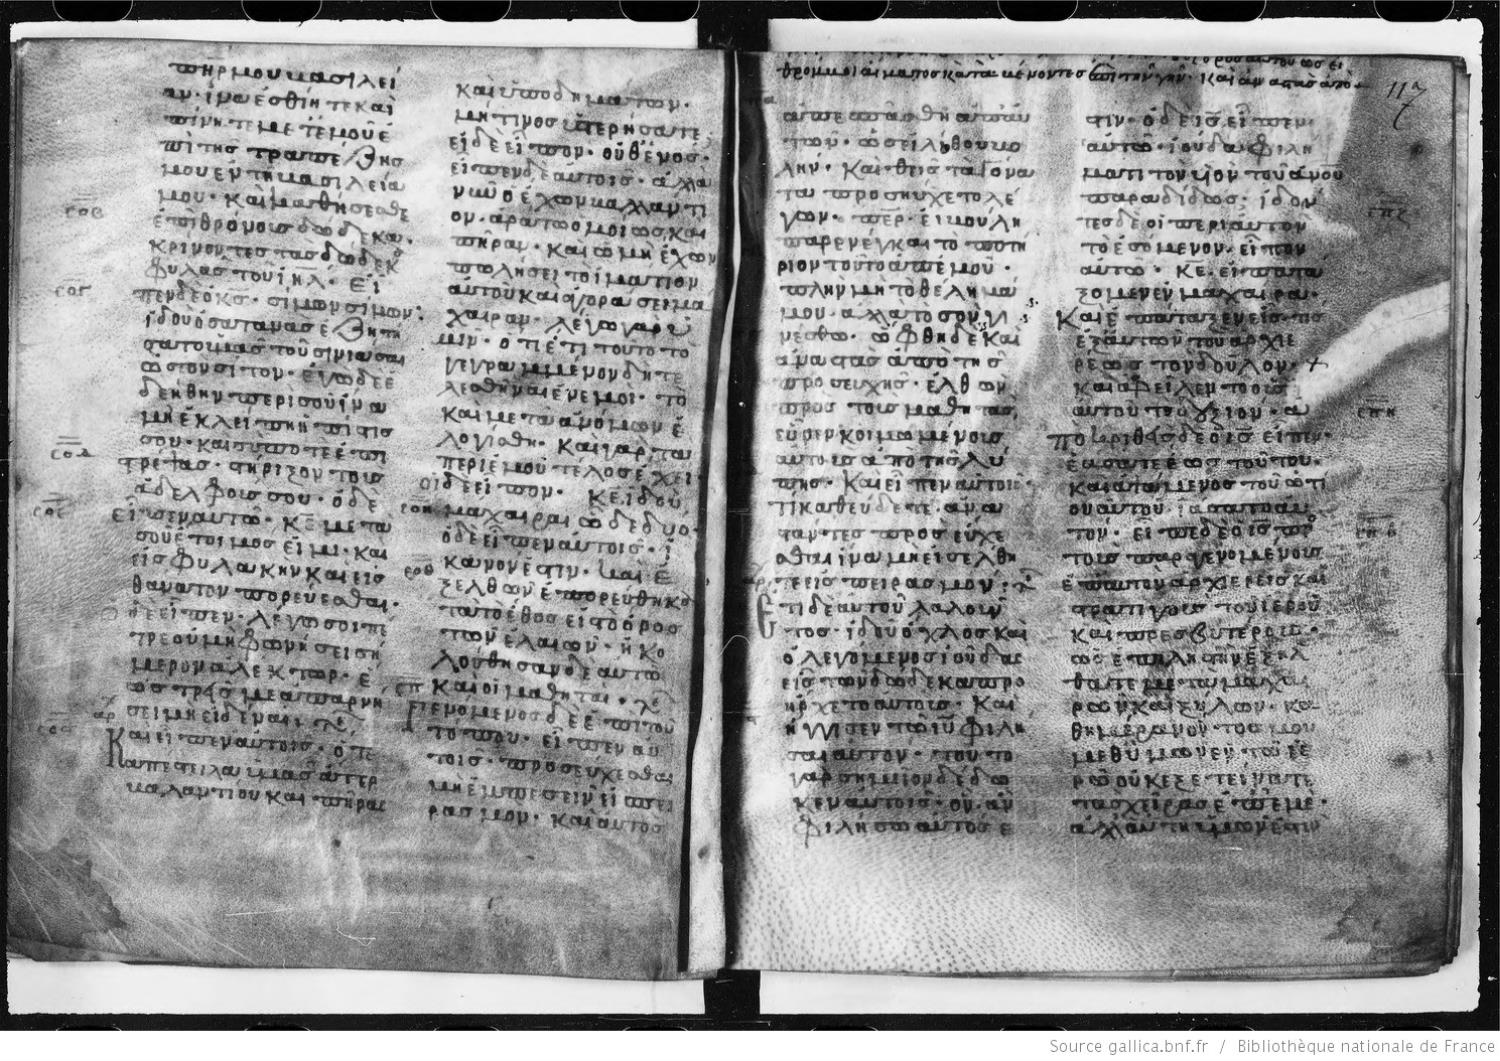 πηρ μου βασιλεί
αν· ἵνα ἐσθίητε καὶ
πίνητε με τεμοῦ ἐ
πὶ τῆς τραπέζης
μου ἐν τῆ βασιλεία
μου· καὶ καθήσεσθε
ἐπι θρόνοις δώδεκα·
κρίνοντες τὰς δώδεκ
φυλὰς τοῦ ιηλ· Εἶ
πεν δὲ ὁ κς· σίμων σίμων·
ἰδοὺ ὁ σατανᾶς ἐζητη
σατο ὑμᾶς τοῦ σινιασαι
ὡς τὸν σῖτον· ἐγὼ δὲ ἐ
δεήθην περὶ σοῦ ἵνα
μὴ ἐκλείπη ἡ πίστις
σου· καὶ σύ ποτε ἐπι
τρέψας· στήριξον τοὺς
ἀδελφούς σου· ὁ δὲ
εἶπεν αὐτῶ· κε μετὰ
σοῦ ἕτοιμός εἰμι· καὶ
εἰς φυλακὴν καὶ εἰς
θάνατον πορεύεσθαι·
ὁ δὲ εἶπεν· λέγω σοι πέ
τρε οὐ μὴ φωνήσει σή
μερον ἀλέκτωρ· ἕ
ως τρὶς με ἀπαρνή
σει μὴ εἰδέναι·
Καὶ εἶπεν αὐτοῖς· ὅτε
ἀπέστειλα ὑμᾶς ἄτερ
βαλαντίου καὶ πήρας
σοβ
σογ
σοδ
σοε
καὶ ὑποδημάτων·
μή τινος ὑστερήσατε
οἱ δὲ εἶπον· οὐθενός·
εἶπεν δὲ αὐτοῖς· ἀλλὰ
νῦν ὁ ἔχων βαλλάντι
ον· ἀράτω ὁμοίως καὶ
πήραν· καὶ ὁ μὴ ἔχων
πωλήσει τὸ ἱμάτιον
αὐτοῦ καὶ ἀγοράσει μα
χαιραν· λέγω γὰρ ὑ
μῖν· ὅτι ἔτι τοῦτο τὸ
γεγραμμένον δεῖ τε
λεσθῆναι ἐν ἐμοί· τὸ
καὶ μετὰ ἀνόμων ἐ
λογίσθη· καὶ γὰρ τὰ
περὶ ἐμοῦ τέλος ἔχει·
οἱ δὲ εἶπον· κε ἰδοὺ
μάχαιραι ὧδε δύο·
ὁ δὲ εἶπεν αὐτοῖς· ἱ
κανόν ἐστιν· καὶ ἐ
ξελθὼν ἐπορεύθη κα
τὰ τὸ ἔθος εἰς τὸ ὄρος
τῶν ἐλαιῶν· ἠκο
λούθησαν δὲ αὐτῶ
καὶ οἱ μαθηταί·
Γενόμενος δὲ ἐπὶ τοῦ
τόπου· εἶπεν αὐ
τοῖς· προσεύχεσθαι
μὴ ἐμπεσεῖν εἰς πει
ρασμόν· καὶ αὐτὸς
σοη
σοθ
σπ
θρόμβοι αἵματος καταβαίνοντες ἐπὶ τὴν γῆν· καὶ ἀναστὰς ἀπὸ
117
ἀπεσπάσθη ἀπ αὐ
τῶν· ὡσεὶ λίθου βο
λήν· καὶ θεὶς τὰ γόνα
τα προσηύχετο λέ
γων· περ· εἰ βούλη
παρενέγκαι τὸ ποτή
ριον τοῦτο ἀπ ἐμοῦ·
πλὴν μὴ τὸ θέλημά
μου· ἀλλὰ τὸ σὸν γι
νέσθω· ὤφθη δὲ καὶ
ἀναστὰς ἀπὸ τῆς
προσευχῆς· ἐλθὼν
πρὸς τοὺς μαθητάς,
εὗρεν κοιμωμένους
αὐτοὺς ἀπὸ τῆς λύ
πης· καὶ εἶπεν αὐτοῖς·
τί καθεύδετε· ἀνα
στάντες προσεύχε
σθαι ἵνα μὴ εἰσέλθη
τε εἰς πειρασμόν·
Ἔτι δὲ αὐτοῦ λαλοῦν
τος· ἰδοὺ ὄχλος καὶ
ὁ λεγόμενος ἰούδας
εἷς τῶν δώδεκα προ
ήρχετο αὐτούς· καὶ
ἤγγισεν τῶ ιυ φιλῆ
σαι αὐτόν· τοῦτο
γὰρ σημεῖον δεδώ
κεν αὐτοῖς· ὃν ἂν
φιλήσω αὐτός ἐ
στιν· ὁ δὲ ις εἶπεν
αὐτῶ· ἰούδα φιλή
ματι τὸν υἱὸν τοῦ ανου
παραδίδως· ἰδόν
τες δὲ οἱ περὶ αὐτὸν
τὸ ἐσόμενον· εἶπον
αὐτῶ· κε· εἰ πατά
ξομεν ἐν μαχαίρα·
Καὶ ἐπάταξεν εἷς τις
ἐξ αὐτῶν τοῦ ἀρχιε
ρέως τὸν δοῦλον·
καὶ ἀφεῖλεν τὸ οὖς
αὐτοῦ τὸ δεξιόν· ἀ
ποκριθεὶς δὲ ὁ ις εἶπεν·
ἐάσατε ἕως τούτου·
καὶ ἁψάμενος τοῦ ὠτί
ου αὐτοῦ ἰάσατο αὐ
τόν· εἶπε δὲ ὁ ις πρὸς
τοὺς παραγενομένους
ἐπ αὐτὸν ἀρχιερεῖς καὶ
στρατηγοὺς τοῦ ἱεροῦ
καὶ πρεσβυτέρους·
ὡς ἐπὶ ληστὴν ἐξήλ
θατε μετὰ μαχαι
ρῶν καὶ ξύλων· κα
θημέραν ὄντος μου
μεθ ὑμῶν ἐν τῶ ἱε
ρῶ οὐκ ἐξετείνατε
τὰς χεῖρας ἐπ ἐμέ·
ἀλλ αὕτη ὑμῶν ἐστὶν
σπζ
σπη
Source gallica.bnf.fr / Bibliothèque nationale de France